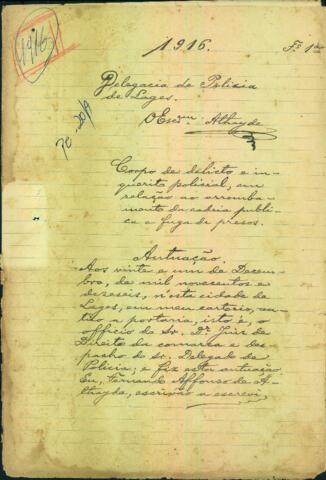 1916
1916. Fs 1
Delegacia de Policia
de Lages.
O Escrm Athayde
Corpo de delicto e in-
querito policial, em
relação ao arromba-
mento da cadeia publi-
ca e fuga de presos.
Autuação.
Aos vinte e um de Dezem-
bro, de mil novesentos e
dezeseis, n'esta cidade de
Lages, em meu cartorio, au-
tuo a portaria, isto é, o
officio do Sr. Dr. Juiz de
Direito da comarca e des-
pacho do sr. Delegado de
Policia; e fiz esta autuação.
Eu, Fernando Affonso de A-
thayde, escrivão a escrevi